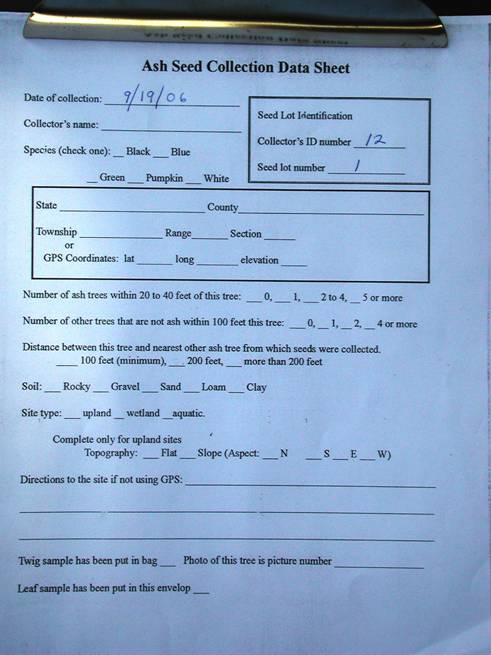 Ash Seed Collection Data Sheet
Date of collection: 9/19/06
Collector's name: ___
Species (check one): __ Black ___ Blue
__ Green ___ Pumpkin ___ White
Seed Lot Identification
Collector's ID number 12
Seed lot number 1
State ___ County ___
Township ___ Range ___ Section ___
or
GPS Coordinates: lat ___ long ___ elevation ___
Number of ash trees within 20 to 40 feet of this tree: ___ 0, ___ 1, ___ 2 to 4, __ 5 or more
Number of other trees that are not ash within 100 feet this tree: ___ 0, __ 1, __ 2, __ 4 or more
Distance between this tree and nearest other ash tree from which seeds were collected.
____ 100 feet (minimum), ___ 200 feet, ___ more than 200 feet
Soil: ___ Rocky ___ Gravel ___ Sand ___ Loam ___ Clay
Site type: ___ upland __ wetland __aquatic.
Complete only for upland sites
Topography: ___ Flat ___ Slope (Aspect: ___ N ___ S ___ E ___ W)
Directions to the site if not using GPS: ___
Twig sample has been put in bag ___ Photo of this tree is picture number ___
Leaf sample has been put in this envelop ___